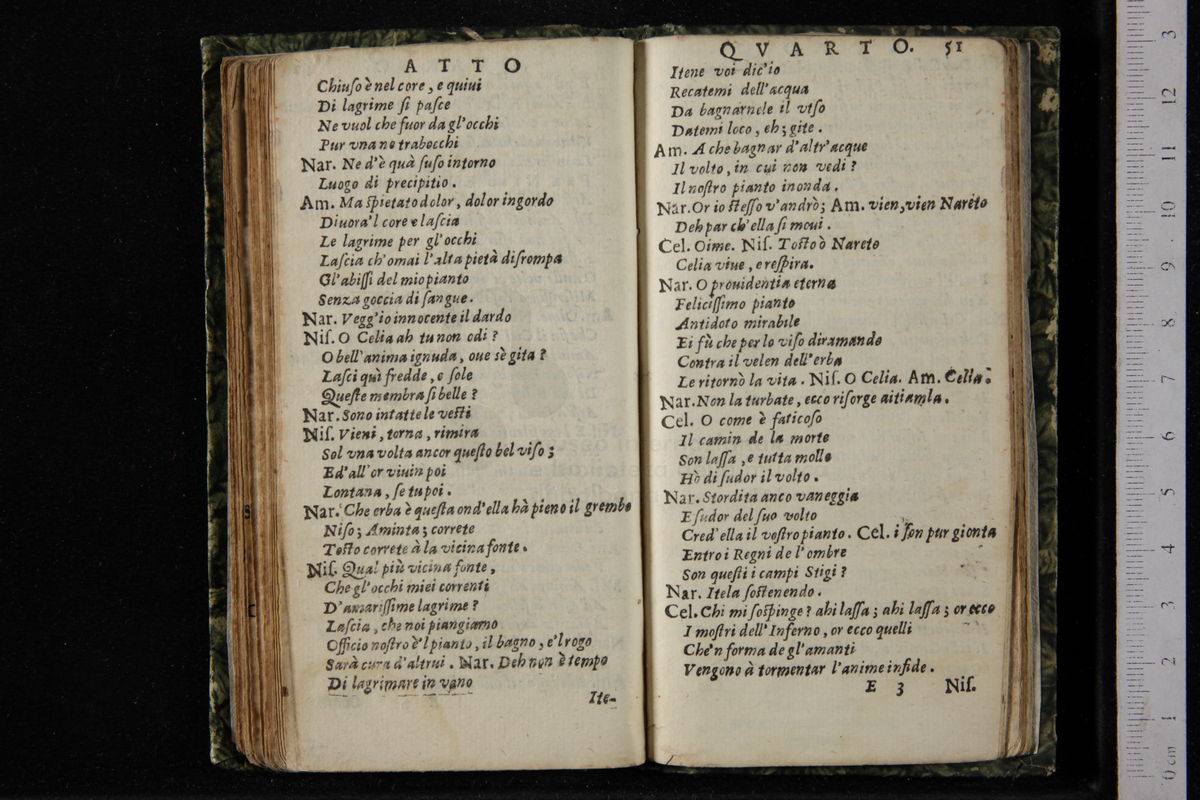 ATTO
Chiuſo è nel core, e quiui
Di lagrime ſi paſce
Ne vuol che fuor da gl'occhi
Pur vna ne trabocchi
Nar. Ne d'è quà ſuſo intorno
Luogo di precipitio.
Am. Ma ſpietato dolor, dolor ingordo
Diuora'l core e laſcia
Le lagrime per gl'occhi
Laſcia ch'omai l'alta pietà diſrompa
Gl'abiſſi del mio pianto
Senza goccia di ſangue.
Nar. Vegg'io innocente il dardo
Niſ. O Celia ah tu non odi?
O bell'anima ignuda, oue sè gita?
Laſci quì fredde, e ſole
Queſte membra ſi belle?
Nar. Sono intatte le veſti
Niſ. Vieni, torna, rimira
Sol vna volta ancor queſto bel viſo;
Ed'all'or viuin poi
Lontana, ſe tu poi.
Nar. Che erba è queſta ond'ella hà pieno il grembo
Niſo; Aminta; correte
Toſto correte à la vicina fonte.
Niſ. Qual più vicina fonte,
Che gl'occhi miei correnti
D'amariſſime lagrime?
Laſcia, che noi piangiamo
Officio noſtro è'l pianto, il bagno, e'l rogo
Sarà cura d'altrui. Nar. Deh non è tempo
Di lagrimare in vano
Ite-
QVARTO. 51
Itene voi dic'io
Recatemi dell'acqua
Da bagnarnele il viſo
Datemi loco, eh; gite.
Am. A che bagnar d'altr'acque
Il volto, in cui non vedi?
Il noſtro pianto inonda.
Nar. Or io ſteſſo v'andrò; Am. vien, vien Nareto
Deh par ch'ella ſi moui.
Cel. Oime. Niſ. Toſto ò Nareto
Celia viue, e reſpira.
Nar. O prouidentia eterna
Feliciſſimo pianto
Antidoto mirabile
Ei fù che per lo viſo diramando
Contra il velen dell'erba
Le ritornò la vita. Niſ. O Celia. Am. Celia.
Nar. Non la turbate, ecco riſorge aitiamla.
Cel. O come è faticoſo
Il camin de la morte
Son laſſa, e tutta molle
Hò di ſudor il volto.
Nar. Stordita anco vaneggia
E ſudor del ſuo volto
Cred'ella il voſtro pianto. Cel. i ſon pur gionta
Entro i Regni de l'ombre
Son queſti i campi Stigi?
Nar. Itela ſoſtenendo.
Cel. Chi mi ſoſpinge? ahi laſſa; ahi laſſa; or ecco
I moſtri dell'Inferno, or ecco quelli
Che'n forma de gl'amanti
Vengono à tormentar l'anime infide.
E 3 Niſ.